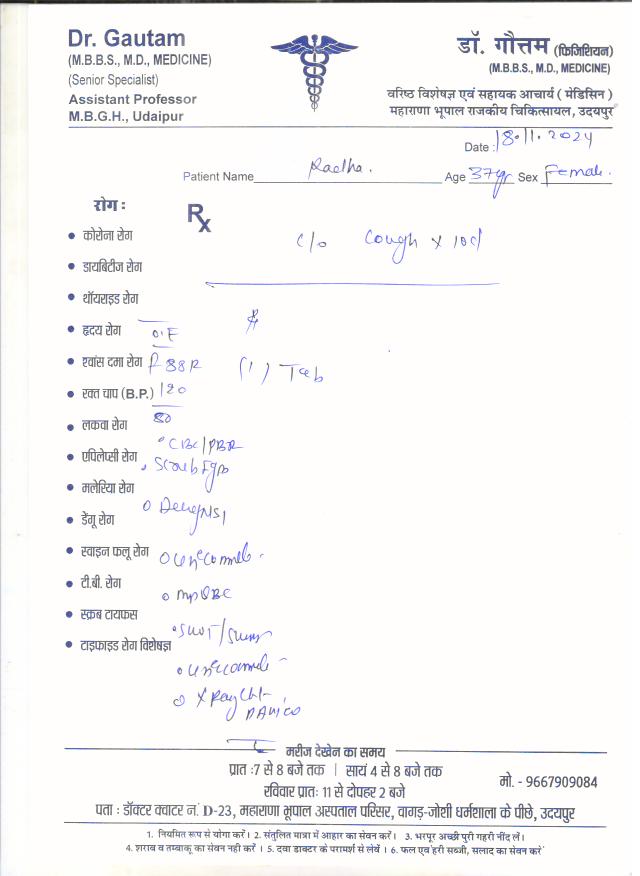 Dr. Gautam
(M.B.B.S., M.D., MEDICINE)
(Senior Specialist)
Assistant Professor
M.B.G.H., Udaipur
डॉ. गौत्तम (फिजिशियन)
(M.B.B.S., M.D., MEDICINE)
वरिष्ठ विशेषज्ञ एवं सहायक आचार्य ( मेडिसिन )
महाराणा भूपाल राजकीय चिकित्सायल, उदयपुर
Date : 18.11.2024
Patient Name Radha. Age 37yr Sex Female.
रोग :
Rx
• कोरोना रोग
c/o Cough x 10d
• डायबिटीज रोग
• थॉयराइड रोग
• हृदय रोग O.E
• श्वांस दमा रोग P 88R (1) Tab
• रक्त चाप (B.P.) 120
80
• लकवा रोग
• CBC/PBR
• एपिलेप्सी रोग
• Scrub Igm
• मलेरिया रोग
• डेंगू रोग
• स्वाइन फलू रोग
• टी.बी. रोग
• MPQBC
• स्क्रब टायफस
• टाइफाइड रोग विशेषज्ञ
• X Ray Cht
मरीज देखेन का समय
प्रात :7 से 8 बजे तक | सायं 4 से 8 बजे तक
रविवार प्रातः 11 से दोपहर 2 बजे
मो. - 9667909084
पता : डॉक्टर क्वाटर नं. D-23, महाराणा भूपाल अस्पताल परिसर, वागड़-जोशी धर्मशाला के पीछे, उदयपुर
1. नियमित रूप से योगा करें। 2. संतुलित मात्रा में आहार का सेवन करें। 3. भरपूर अच्छी पुरी गहरी नींद लें।
4. शराब व तम्बाकू का सेवन नही करें । 5. दवा डाक्टर के परामर्श से लेवें । 6. फल एवं हरी सब्जी, सलाद का सेवन करें